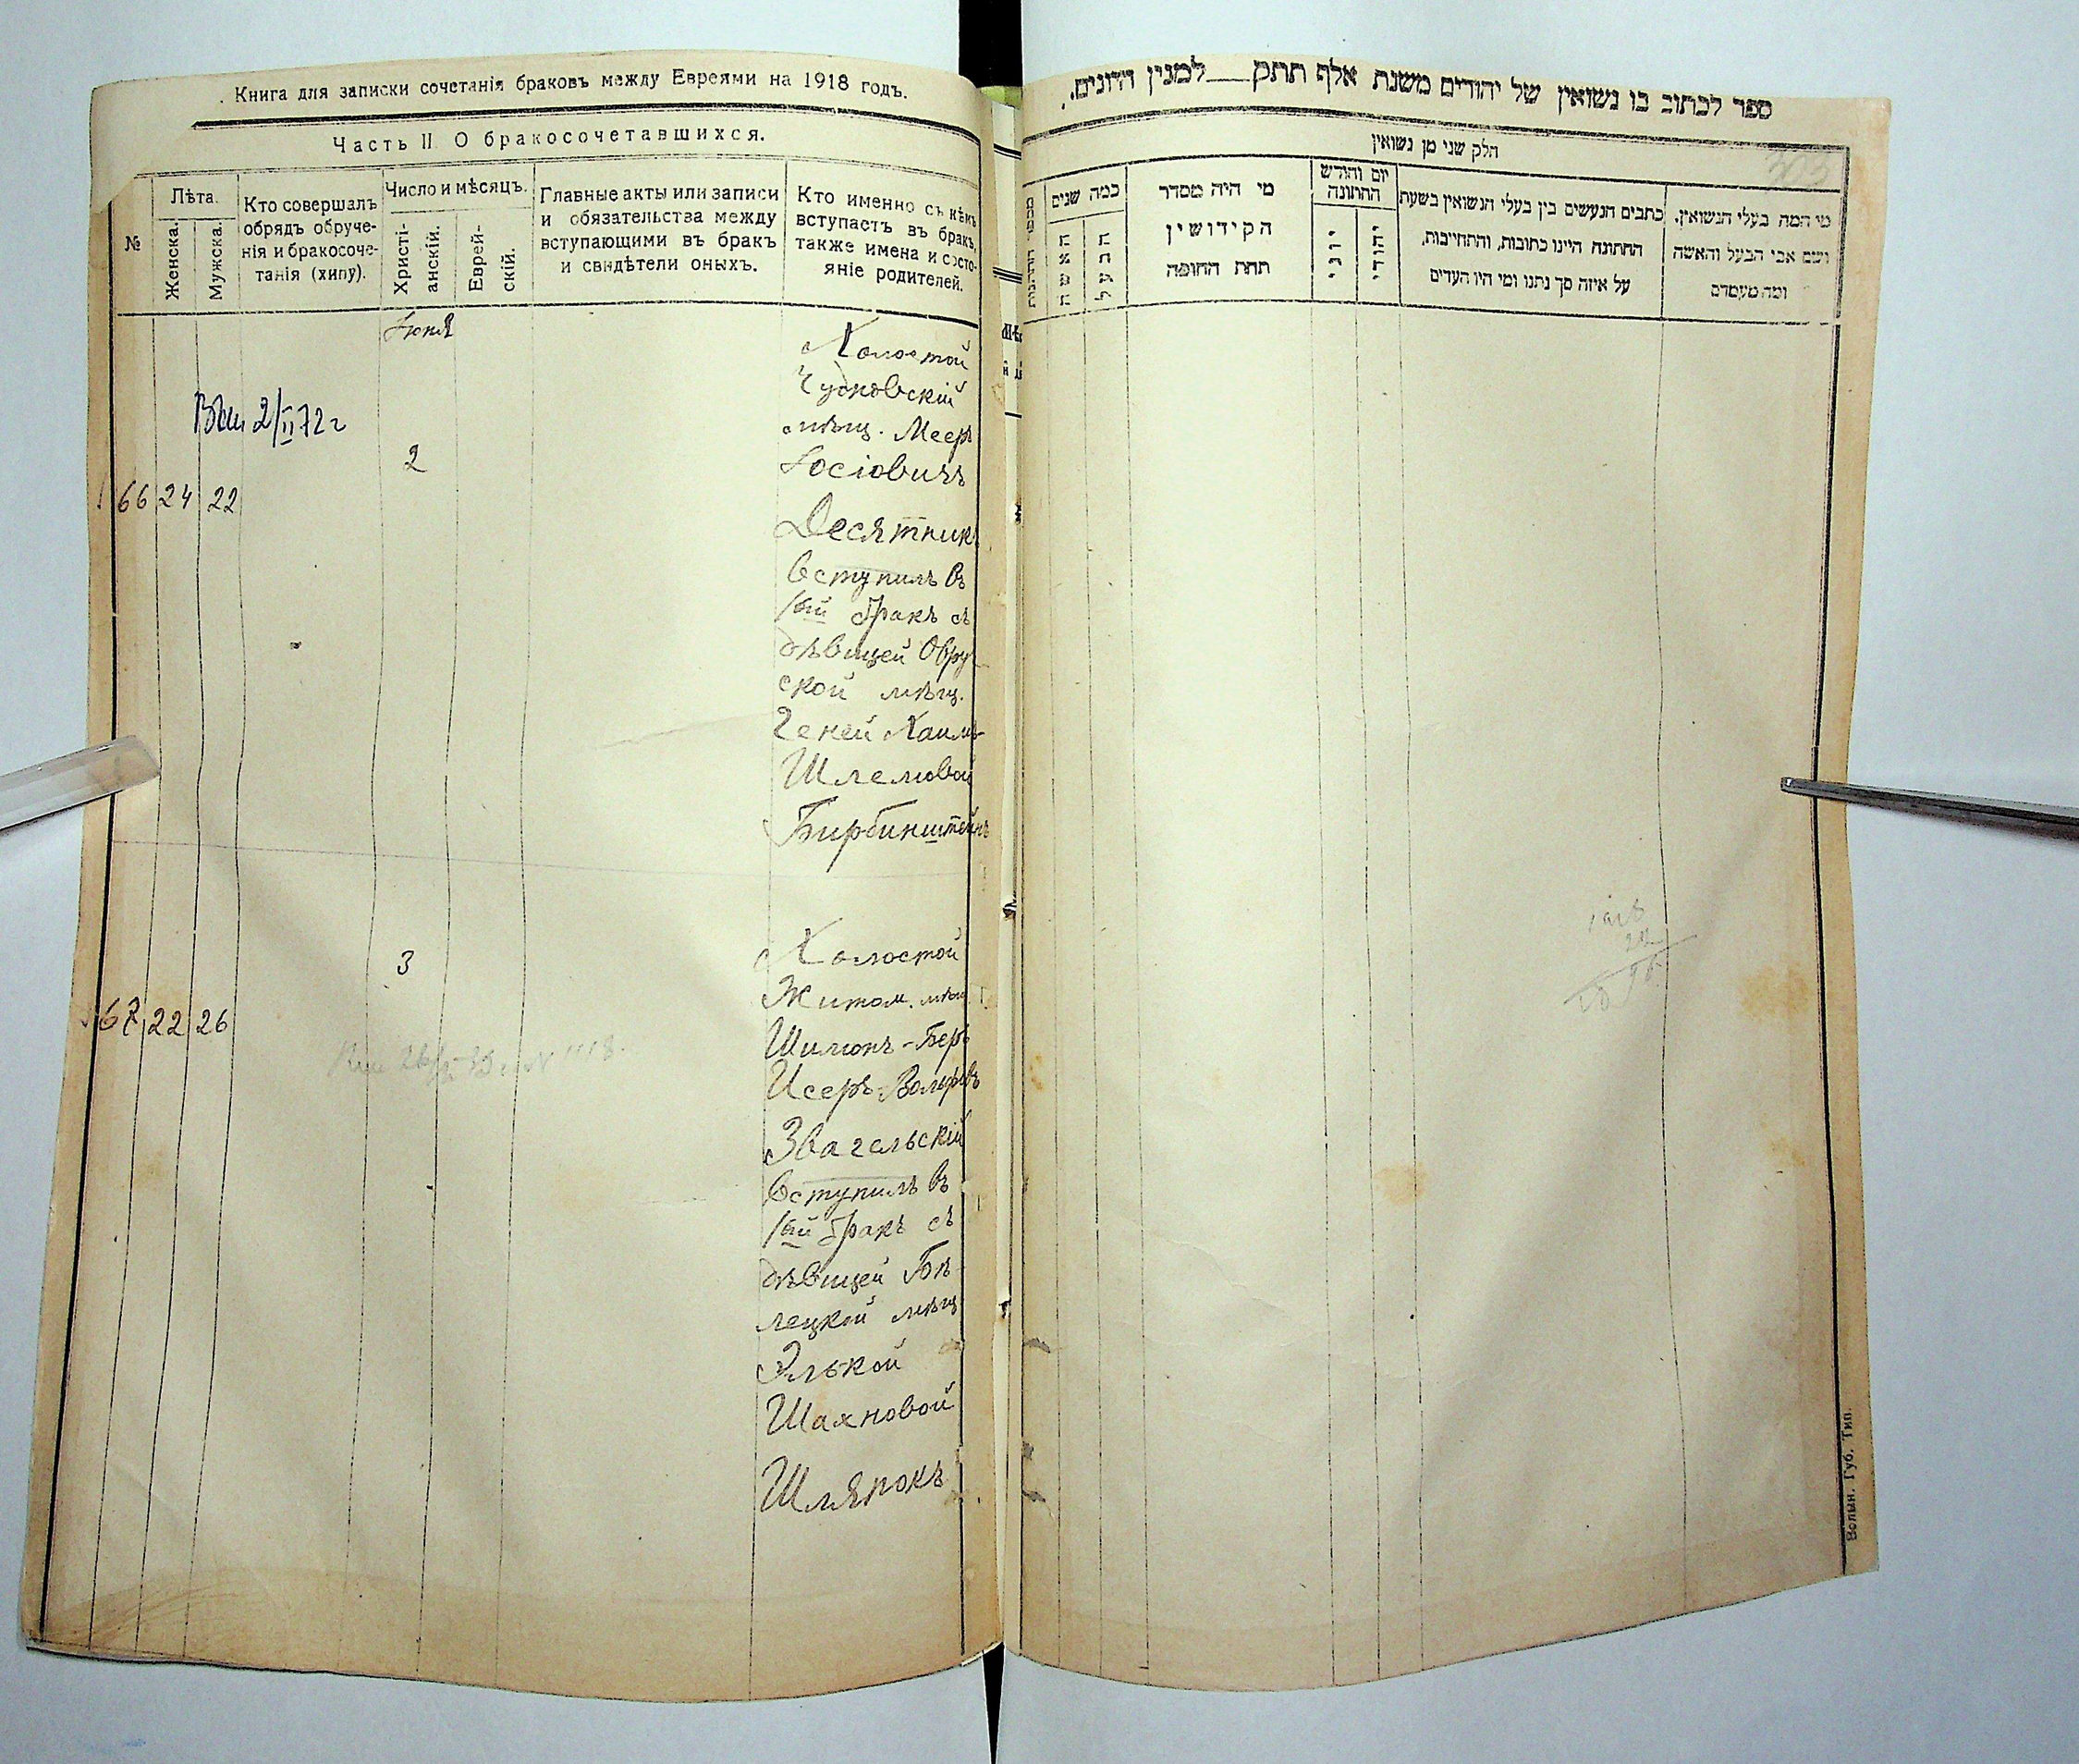 Книга для записки сочетанія браковъ между Евреями на 1918 годъ.
Часть II О бракосочетавшихся.
№
Лѣта.
Женска.
Мужска.
Кто совершалъ
обрядъ обруче-
нія и бракосоче-
танія (хипу).
Число и мѣсяцъ.
Христі-
анскій.
Еврей-
скій.
Главные акты или записи
и обязательства между
вступающими въ бракъ
и свидѣтели оныхъ.
Кто именно съ кѣмъ
вступаетъ въ бракъ,
также имена и состо-
яніе родителей.
Іюня
2/II 72 г
66 24 22
2
Холостой
Чудновскій
мѣщ. Мееръ
Іосіовичъ
Десятникъ
вступилъ въ
1ый бракъ съ
дѣвицей Овру
ской мѣщ.
Геней Хаимъ-
Шлемовой
Бирбинштейнъ
67 22 26
3
Холостой
Житом. мѣщ
Шимонъ-Беръ
Исеръ-Вольфовъ
Звагельскій
вступилъ въ
1ый бракъ съ
дѣвицей
лецкой мѣщ
Элькой
Шахновой
303
ספר לכתוב בו נשואין של יהודים משנת אלף תתק__ למנין היונים.
חלק שני מן נשואין
כמה שנים
האשה
הבעל
מי היה מסדר
הקידושין
תחת החופה
יום וחודש
החתונה
יוני
יהודי
כתבים הנעשים בין בעלי הנשואין בשעת
החתונה היינו כתובות, והתחייבות,
על איזה סך נתנו ומי היו העדים
מי המה בעלי הנשואין,
ושם אבי הבעל והאשה
ומה מעמדם
Волын. Губ. Тип.